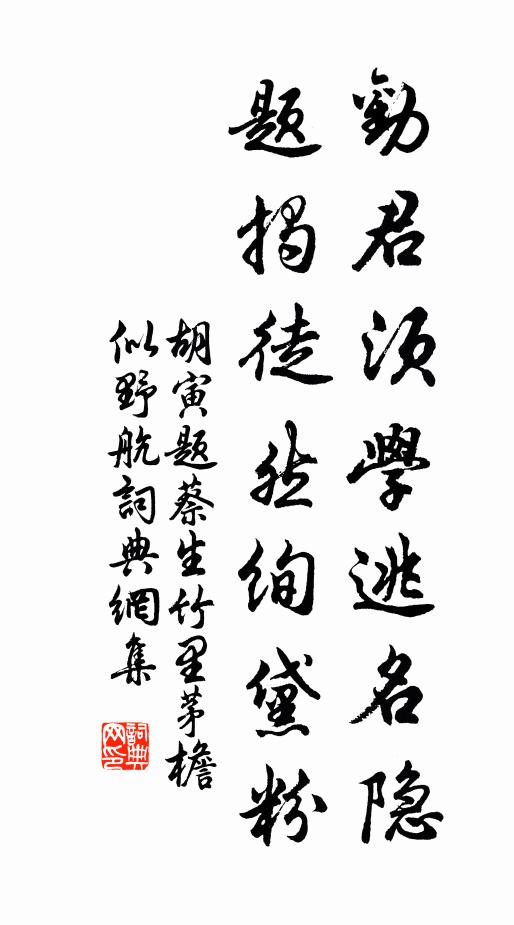 勸君須學逃名隐
題揭徒然绚黛粉
胡寅題蔡生竹里茅檐
似野航詞典網集
詞典网印